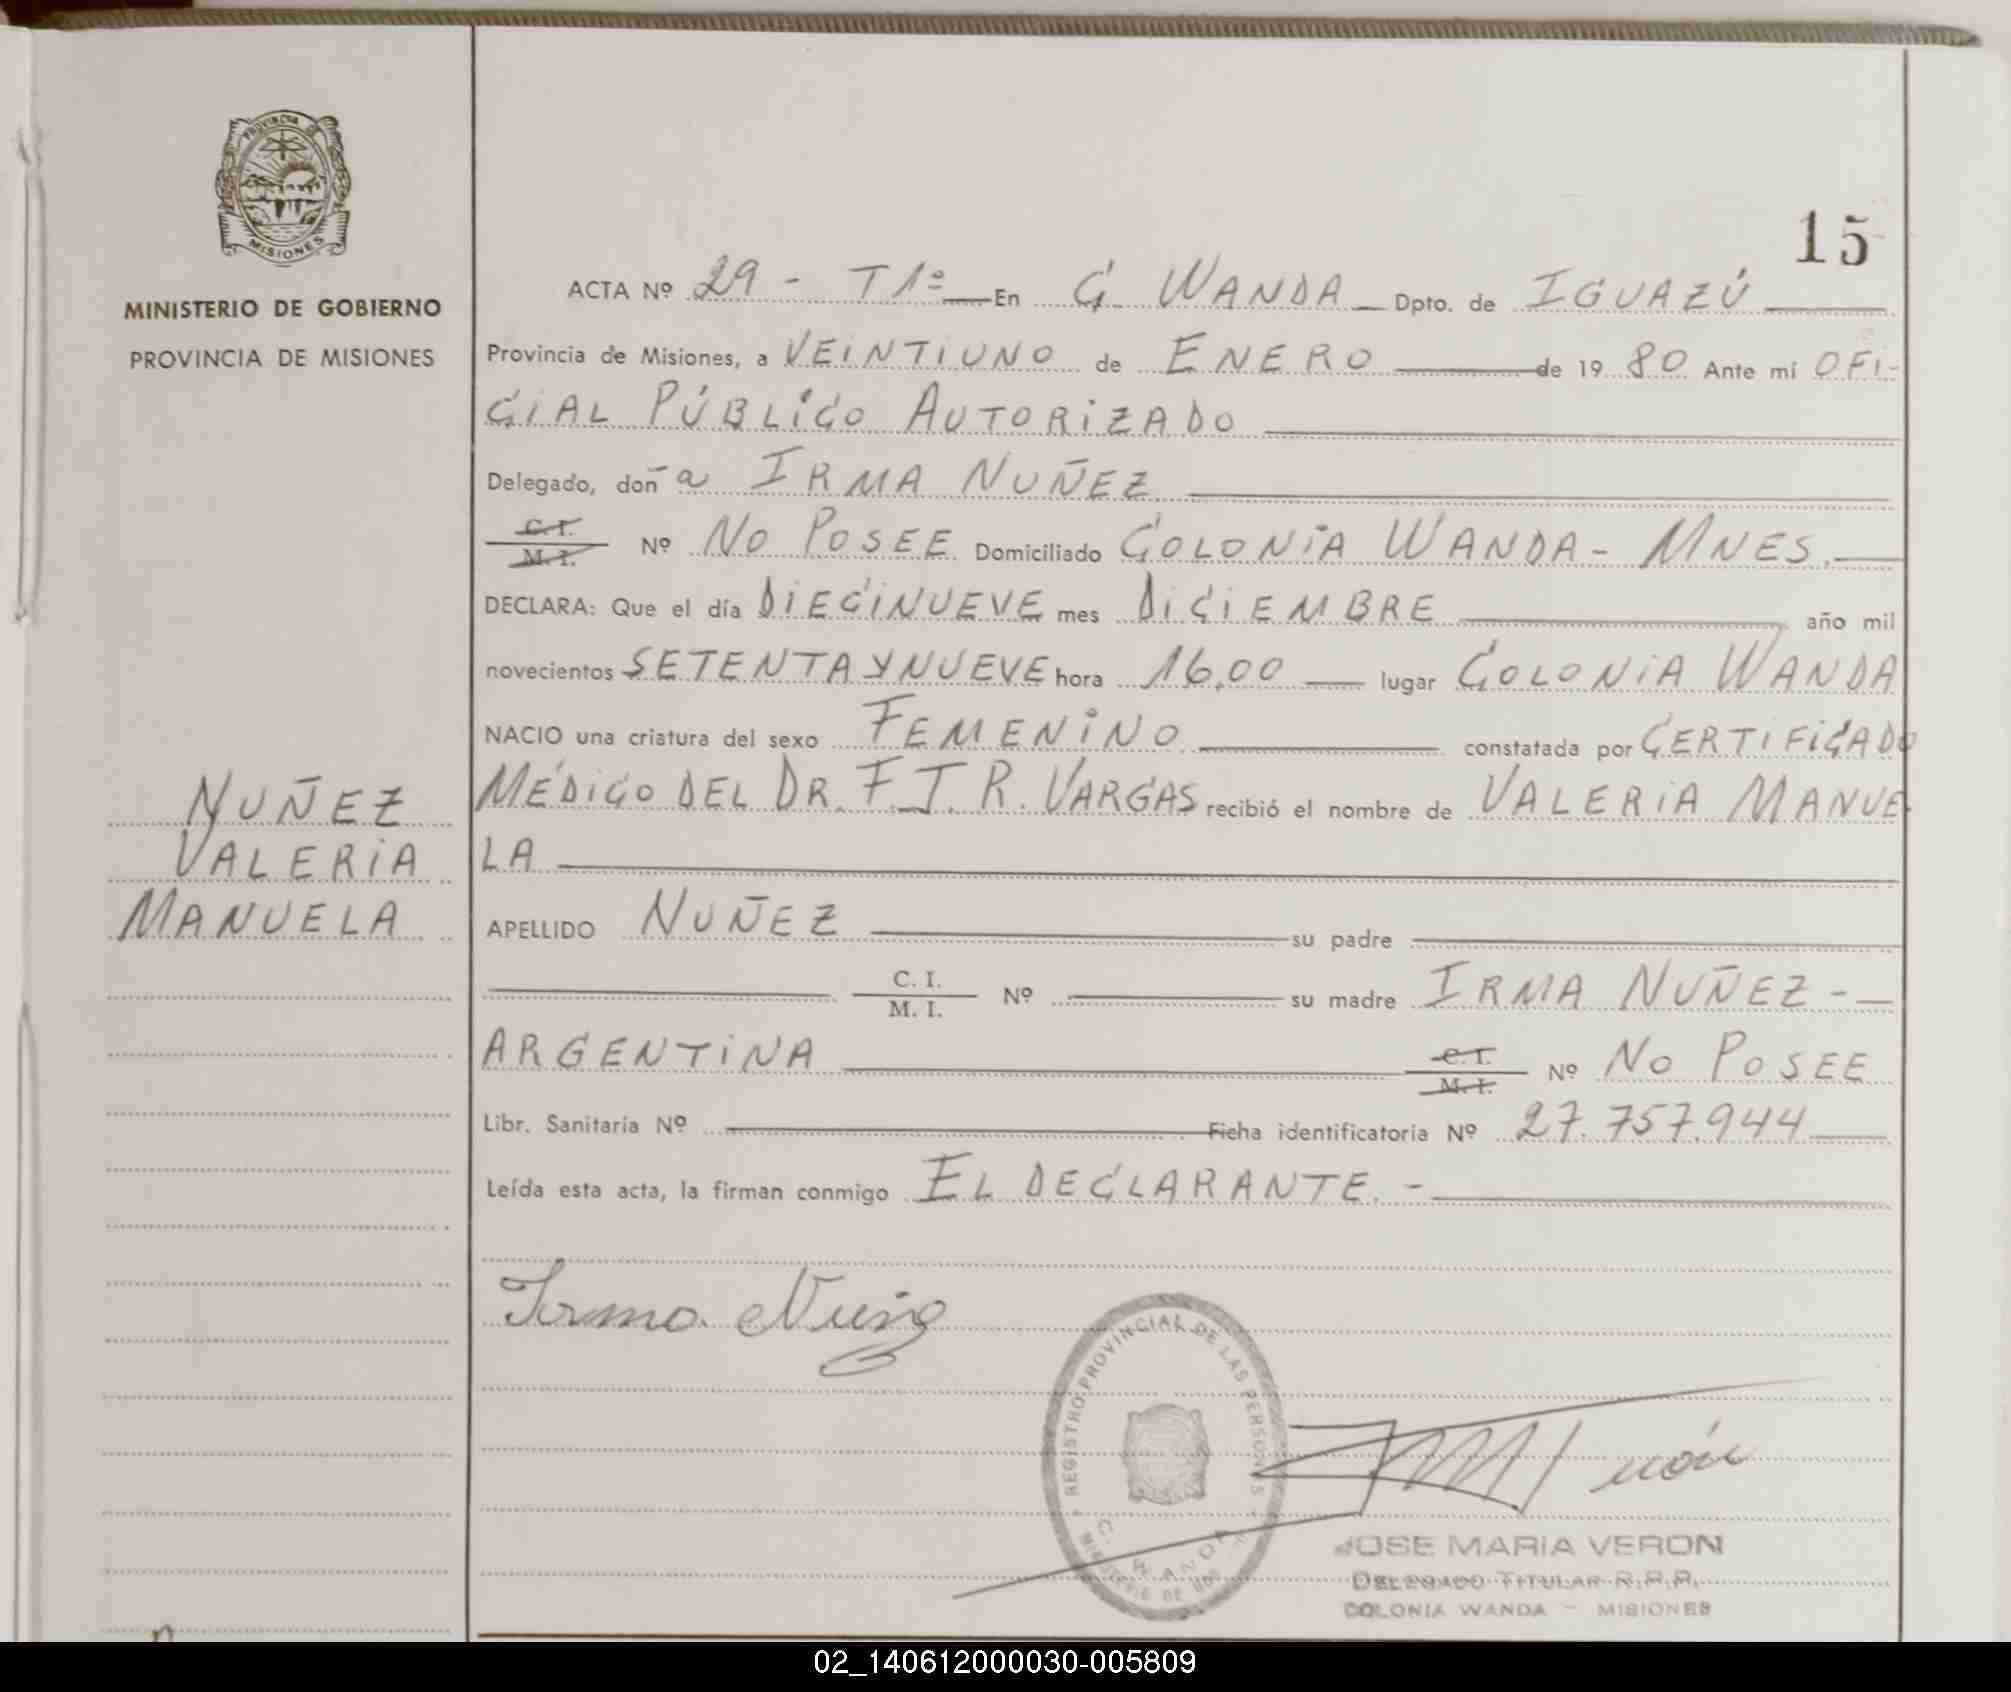 PROVINCIA DE
MISIONES
MINISTERIO DE GOBIERNO
PROVINCIA DE MISIONES
NUÑEZ
VALERIA
MANUELA
15
ACTA Nº 29 - T 1º En C. WANDA Dpto. de IGUAZÚ
Provincia de Misiones, a VEINTIUNO de ENERO de 19 80 Ante mí OFI-
CIAL PÚBLICO AUTORIZADO
Delegado, doña IRMA NUÑEZ
C. I.
M. I. Nº NO POSEE Domiciliado COLONIA WANDA - MNES.
DECLARA: Que el día DIECINUEVE mes DICIEMBRE año mil
novecientos SETENTA Y NUEVE hora 16,00 lugar COLONIA WANDA
NACIO una criatura del sexo FEMENINO constatada por CERTIFICADO
MÉDICO DEL DR. F. J. R. VARGAS recibió el nombre de VALERIA MANUE-
LA
APELLIDO NUÑEZ su padre
C. I.
M. I. Nº su madre IRMA NUÑEZ -
ARGENTINA C. I.
M. I. Nº NO POSEE
Libr. Sanitaria Nº Ficha identificatoria Nº 27.757.944
Leída esta acta, la firman conmigo EL DECLARANTE. -
Irma Nuñez
REGISTRO PROVINCIAL DE LAS PERSONAS
C. WANDA
JOSE MARIA VERON
DELEGADO TITULAR R.P.P.
COLONIA WANDA - MISIONES
02_140612000030-005809